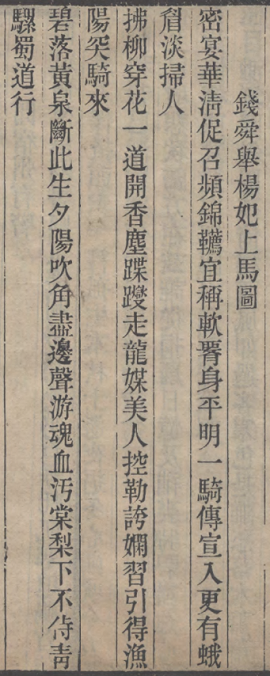 錢舜舉楊妃上馬圖
密宴華清促召頻錦韉宜稱軟胥身平明一騎傳宣入更有蛾
眉淡掃人
拂柳穿花一道開香塵蹀躞走龍媒美人控勒誇嫻習引得漁
陽突騎來
碧落黃泉斷此生夕陽吹角盡邊聲游魂血汚棠梨下不侍青
騾蜀道行